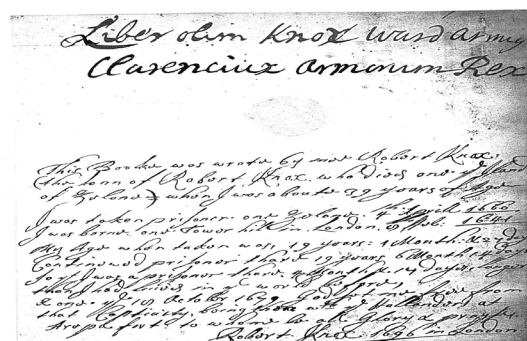 Liber olim Knox Ward Armig
Clarenciux Armorum Rex
This Booke was wrote by mee Robert Knox,
(the sonn of Robert Knox who died one ye Iland
of Zelone) when I was about 39 years of Age
I was taken prisoner one Zelone 4th Aprill 1660
I was borne one Tower hill in London 8 Feb: 1641
My Age when taken was, 19 years: 1 Month: & 27
Continewed prisoner thare 19 years 6 Month 14 days
So yt I was a prisoner thare 4 Month & 14 days
than I had lived in ye world before,
& one ye 18 October 1679 God sett me free from
that Captivity, being then with ye Hollanders at
Arepa fort to whome be all Glory & prayse
Robert Knox 1696 in London